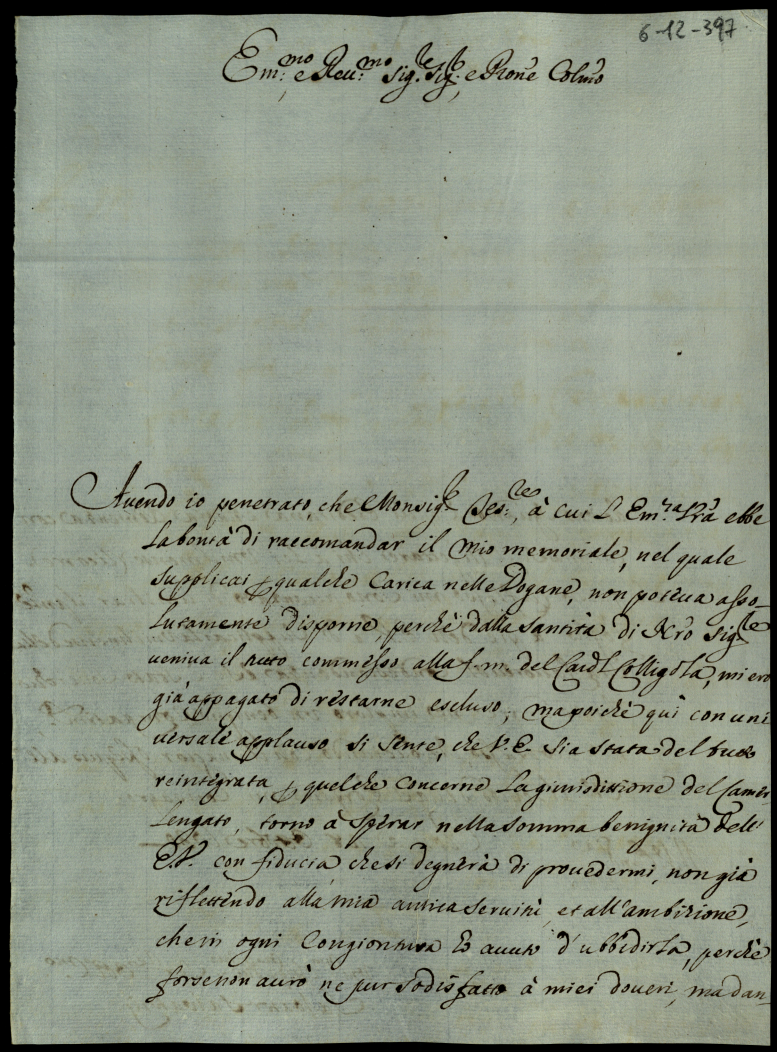 6-12-397
Em:mo e Reu:mo Sig.re Sig.re e Prone Colmo
Auendo io penetrato, che Monsig.re Tes:re, à cui L' Em:za Vra ebbe
la bontà di raccomandar il mio memoriale, nel quale
supplicai p qualche Carica nelle Dogane, non poteua asso-
lutamente disporne, perchè dalla Santità di Nro Sig.re
ueniua il tutto commesso alla f. m. del Card.l Colligola, mi ero
già appagato di restarne escluso; ma poichè quì con uni
uersale applauso si sente, che V. E. sia stata del tutto
reintegrata, p quelche concerne la giurisdittione del Camer
lengato, torno à sperar nella somma benignità dell'
E. V. con fiducia che si degnerà di prouedermi, non già
riflettendo alla mia antica seruitù, et all'ambizione,
che in ogni Congiontura hò auuto d'ubbidirla, perchè
forse non aurò ne pur sodisfatto à miei doueri, ma dan-